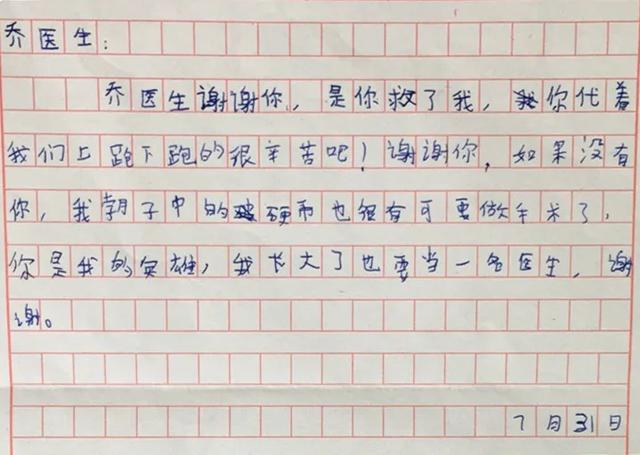 乔医生:
乔医生谢谢你,是你救了我,你代着
我们上跑下跑的很辛苦吧!谢谢你,如果没有
你,我子中的硬币也很有可要做手术了,
你是我的英雄,我长大了也要当一名医生,谢
谢。
7月31日